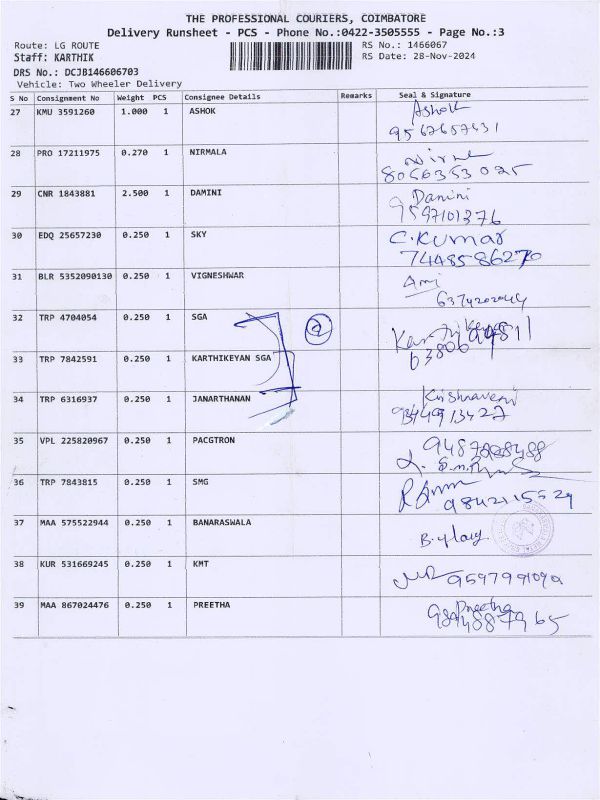 THE PROFESSIONAL COURIERS, COIMBATORE
Delivery Runsheet - PCS - Phone No.:0422-3505555 - Page No.:3
Route: LG ROUTE
RS No.: 1466067
Staff: KARTHIK
RS Date: 28-Nov-2024
DRS No.: DCJB146606703
Vehicle: Two Wheeler Delivery
S No Consignment No Weight PCS Consignee Details Remarks Seal & Signature
27 KMU 3591260 1.000 1 ASHOK Ashok
28 PRO 17211975 0.270 1 NIRMALA
8056353025
29 CNR 1843881 2.500 1 DAMINI Damini
9597101376
30 EDQ 25657230 0.250 1 SKY C.Kumar
7448586270
31 BLR 5352090130 0.250 1 VIGNESHWAR
32 TRP 4704054 0.250 1 SGA 2
33 TRP 7842591 0.250 1 KARTHIKEYAN SGA
34 TRP 6316937 0.250 1 JANARTHANAN Krishnaveni
35 VPL 225820967 0.250 1 PACGTRON
36 TRP 7843815 0.250 1 SMG
37 MAA 575522944 0.250 1 BANARASWALA
38 KUR 531669245 0.250 1 KMT
39 MAA 867024476 0.250 1 PREETHA Preetha